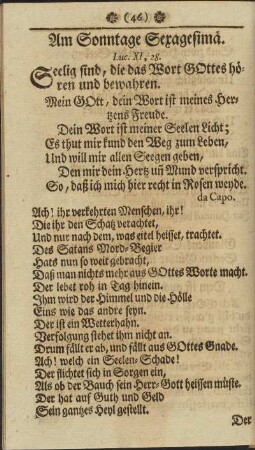 (46)
Am Sonntage Sexagesimâ.
Luc. XI, 28.
Seelig sind, die das Wort GOttes hö-
ren und bewahren.
Mein GOtt, dein Wort ist meines Her-
tzens Freude.
Dein Wort ist meiner Seelen Licht;
Es thut mir kund den Weg zum Leben,
Und will mir allen Seegen geben,
Den mir dein Hertz uñ Mund verspricht.
So, daß ich mich hier recht in Rosen weyde.
da Capo.
Ach! ihr verkehrten Menschen, ihr!
Die ihr den Schatz verachtet,
Und nur nach dem, was eitel heisset, trachtet.
Des Satans Mord-Begier
Hats nun so weit gebracht,
Daß man nichts mehr aus GOttes Worte macht.
Der lebet roh in Tag hinein.
Ihm wird der Himmel und die Hölle
Eins wie das andre seyn.
Der ist ein Wetterhahn.
Verfolgung stehet ihm nicht an.
Drum fällt er ab, und fällt aus GOttes Gnade.
Ach! welch ein Seelen-Schade!
Der flichtet sich in Sorgen ein,
Als ob der Bauch sein Herr-Gott heissen müste.
Der hat auf Guth und Geld
Sein gantzes Heyl gestellt.
Der